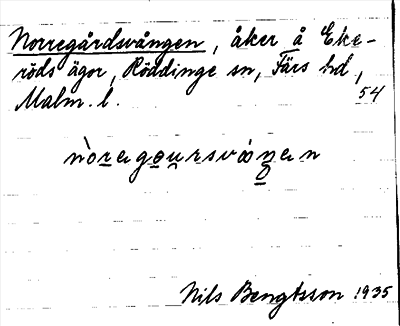 Norregårdsvången, åker å Eke-
röds ägor, Röddinge sn, Färs hd,
Malm. l. 54
nòregoursván̥en
Nils Bengtsson 1935